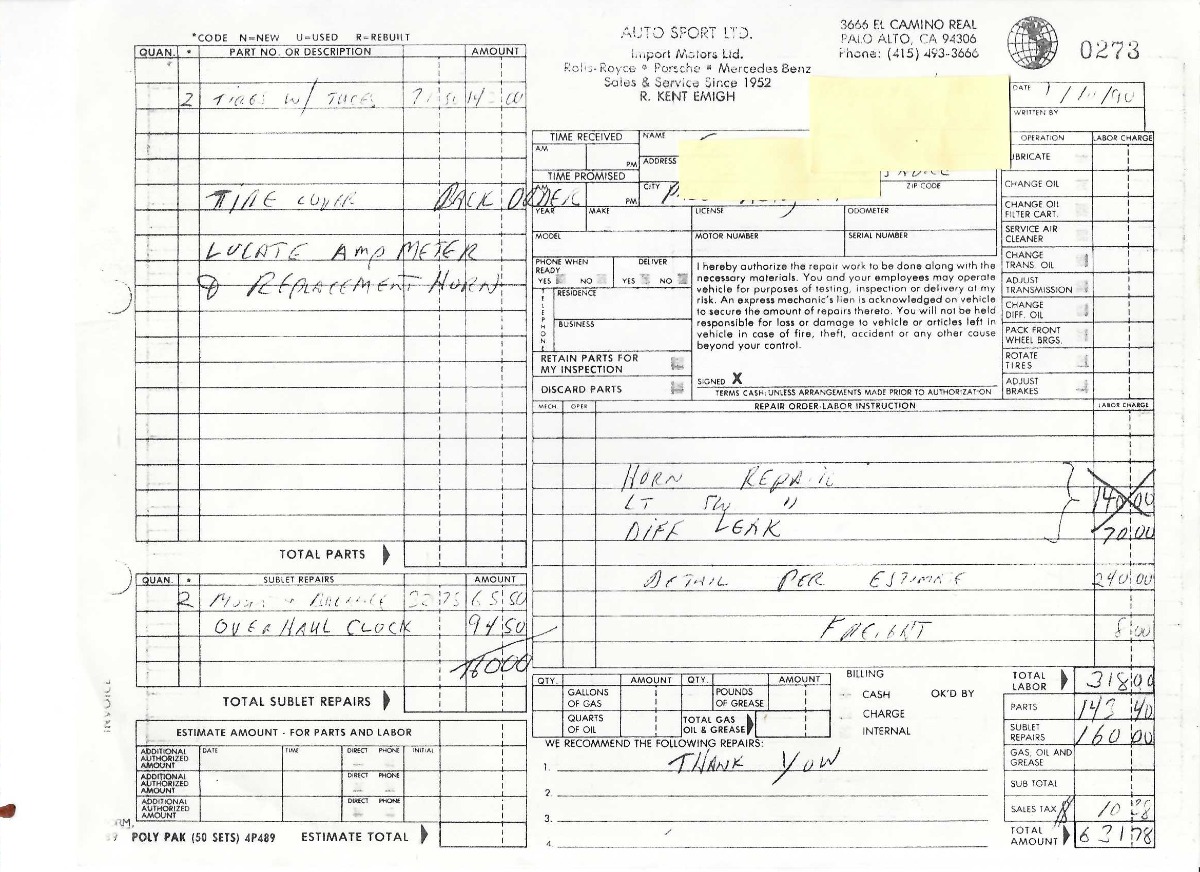 *CODE N=NEW U=USED R=REBUILT
QUAN. * PART NO. OR DESCRIPTION AMOUNT
2 TIRES W/ TUBES 00
TIRE COVER BACK ORDER
LOCATE AMP METER
& REPLACEMENT HORN
TOTAL PARTS
QUAN. * SUBLET REPAIRS AMOUNT
2 MOUNT & BALANCE 32 75 65 50
OVERHAUL CLOCK 94 50
16000
TOTAL SUBLET REPAIRS
ESTIMATE AMOUNT - FOR PARTS AND LABOR
ADDITIONAL AUTHORIZED AMOUNT DATE TIME DIRECT PHONE INITIAL
ADDITIONAL AUTHORIZED AMOUNT DIRECT PHONE
ADDITIONAL AUTHORIZED AMOUNT DIRECT PHONE
INVOICE
POLY PAK (50 SETS) 4P489 ESTIMATE TOTAL
AUTO SPORT LTD.
Import Motors Ltd.
Rolls-Royce * Porsche * Mercedes Benz
Sales & Service Since 1952
R. KENT EMIGH
3666 EL CAMINO REAL
PALO ALTO, CA 94306
Phone: (415) 493-3666
0273
DATE
WRITTEN BY
TIME RECEIVED NAME
AM. PM. ADDRESS
TIME PROMISED
AM. PM. CITY ZIP CODE
YEAR MAKE LICENSE ODOMETER
MODEL MOTOR NUMBER SERIAL NUMBER
PHONE WHEN READY DELIVER
YES NO YES NO
TELEPHONE
RESIDENCE
BUSINESS
RETAIN PARTS FOR MY INSPECTION
DISCARD PARTS
I hereby authorize the repair work to be done along with the
necessary materials. You and your employees may operate
vehicle for purposes of testing, inspection or delivery at my
risk. An express mechanic's lien is acknowledged on vehicle
to secure the amount of repairs thereto. You will not be held
responsible for loss or damage to vehicle or articles left in
vehicle in case of fire, theft, accident or any other cause
beyond your control.
SIGNED X
TERMS CASH: UNLESS ARRANGEMENTS MADE PRIOR TO AUTHORIZATION
OPERATION LABOR CHARGE
UBRICATE
CHANGE OIL
CHANGE OIL FILTER CART.
SERVICE AIR CLEANER
CHANGE TRANS. OIL
ADJUST TRANSMISSION
CHANGE DIFF. OIL
PACK FRONT WHEEL BRGS.
ROTATE TIRES
ADJUST BRAKES
MECH. OPER. REPAIR ORDER-LABOR INSTRUCTION LABOR CHARGE
HORN REPAIR
LT "
140 00
DIFF LEAK 70 00
DETAIL PER ESTIMATE 240 00
FREIGHT 8 00
QTY. AMOUNT QTY. AMOUNT
GALLONS OF GAS POUNDS OF GREASE
QUARTS OF OIL TOTAL GAS OIL & GREASE
BILLING
CASH OK'D BY
CHARGE
INTERNAL
WE RECOMMEND THE FOLLOWING REPAIRS:
1. THANK YOU
2.
3.
4.
TOTAL LABOR 318 00
PARTS 143 40
SUBLET REPAIRS 160 00
GAS, OIL AND GREASE
SUB TOTAL
SALES TAX 10 28
TOTAL AMOUNT 631 78